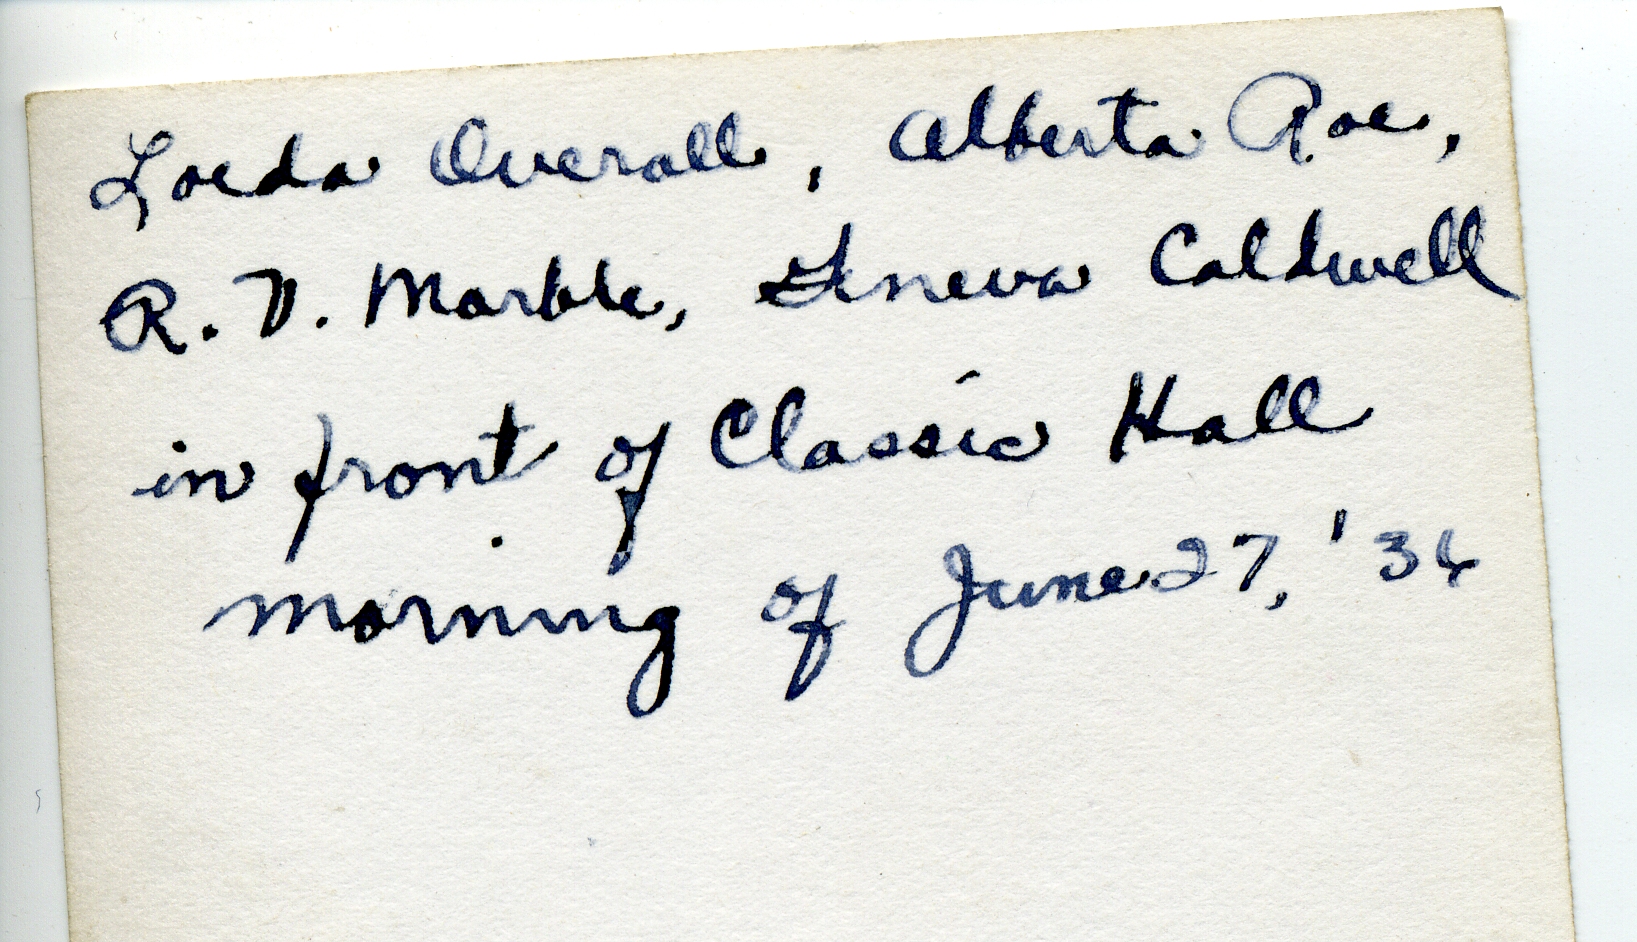 Loeda Overall, Alberta Roe,
R. V. Marble, Geneva Caldwell
in front of Classic Hall
morning of June 27, '36